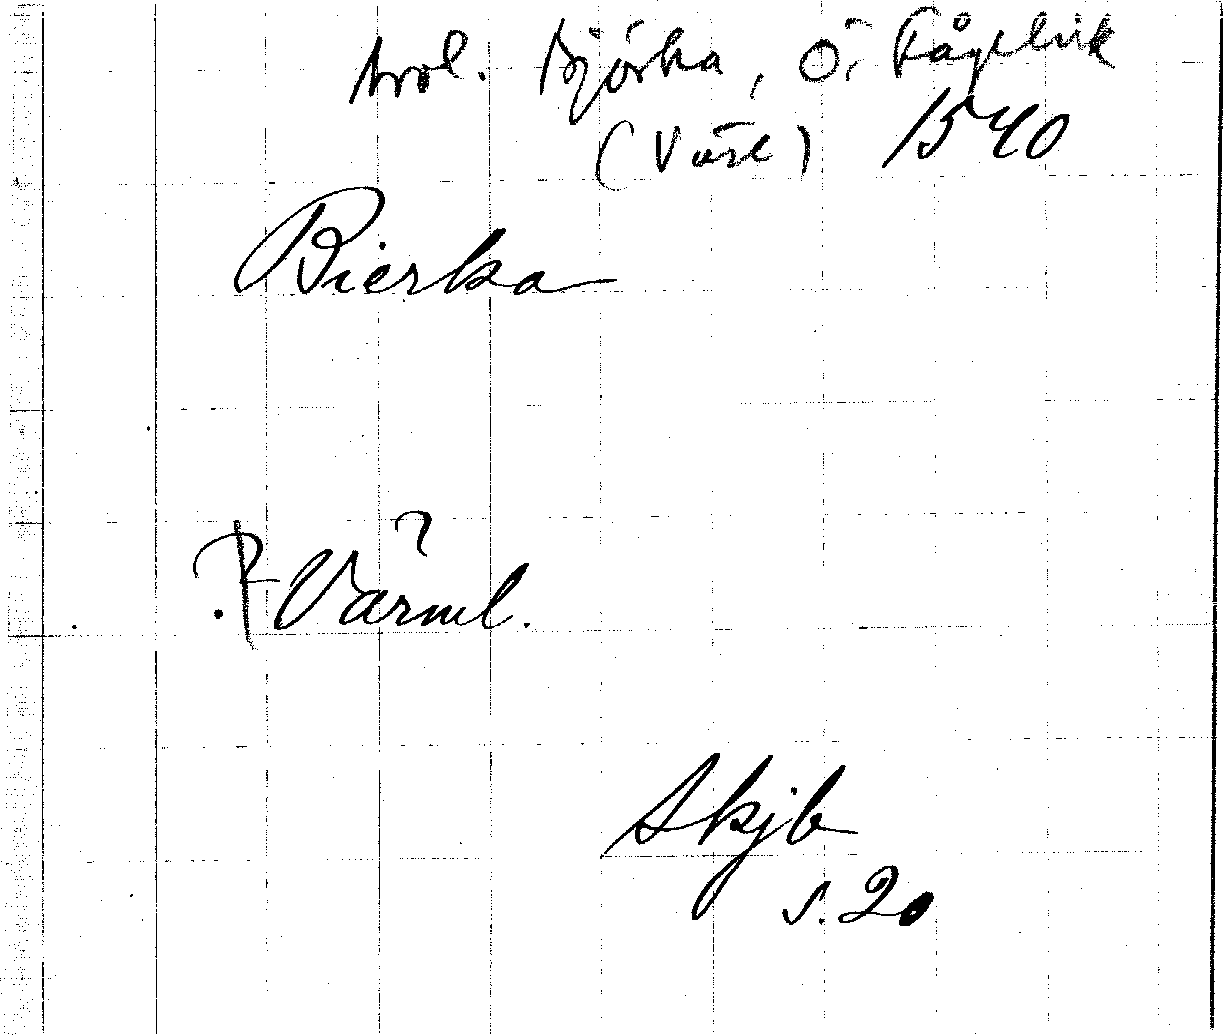 trol. Björka, Ö. Fågelvik
(Väse) 1540
Bierka
?
? Värml.
Skjb
s. 20